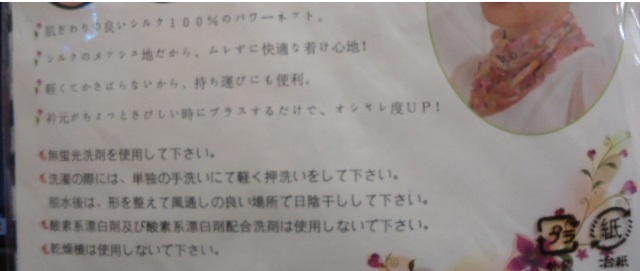 肌ざわりの良いシルク100%のパワーネット。
シルクのメッシュ地だから、ムレずに快適な着け心地!
軽くてかさばらないから、持ち運びにも便利。
衿元がちょっとさびしい時にプラスするだけで、オシャレ度UP!
無蛍光洗剤を使用して下さい。
洗濯の際には、単独の手洗いにて軽く押洗いをして下さい。
脱水後は、形を整えて風通しの良い場所で日陰干しして下さい。
酸素系漂白剤及び酸素系漂白剤配合洗剤は使用しないで下さい。
乾燥機は使用しないで下さい。
プラ 紙
台紙